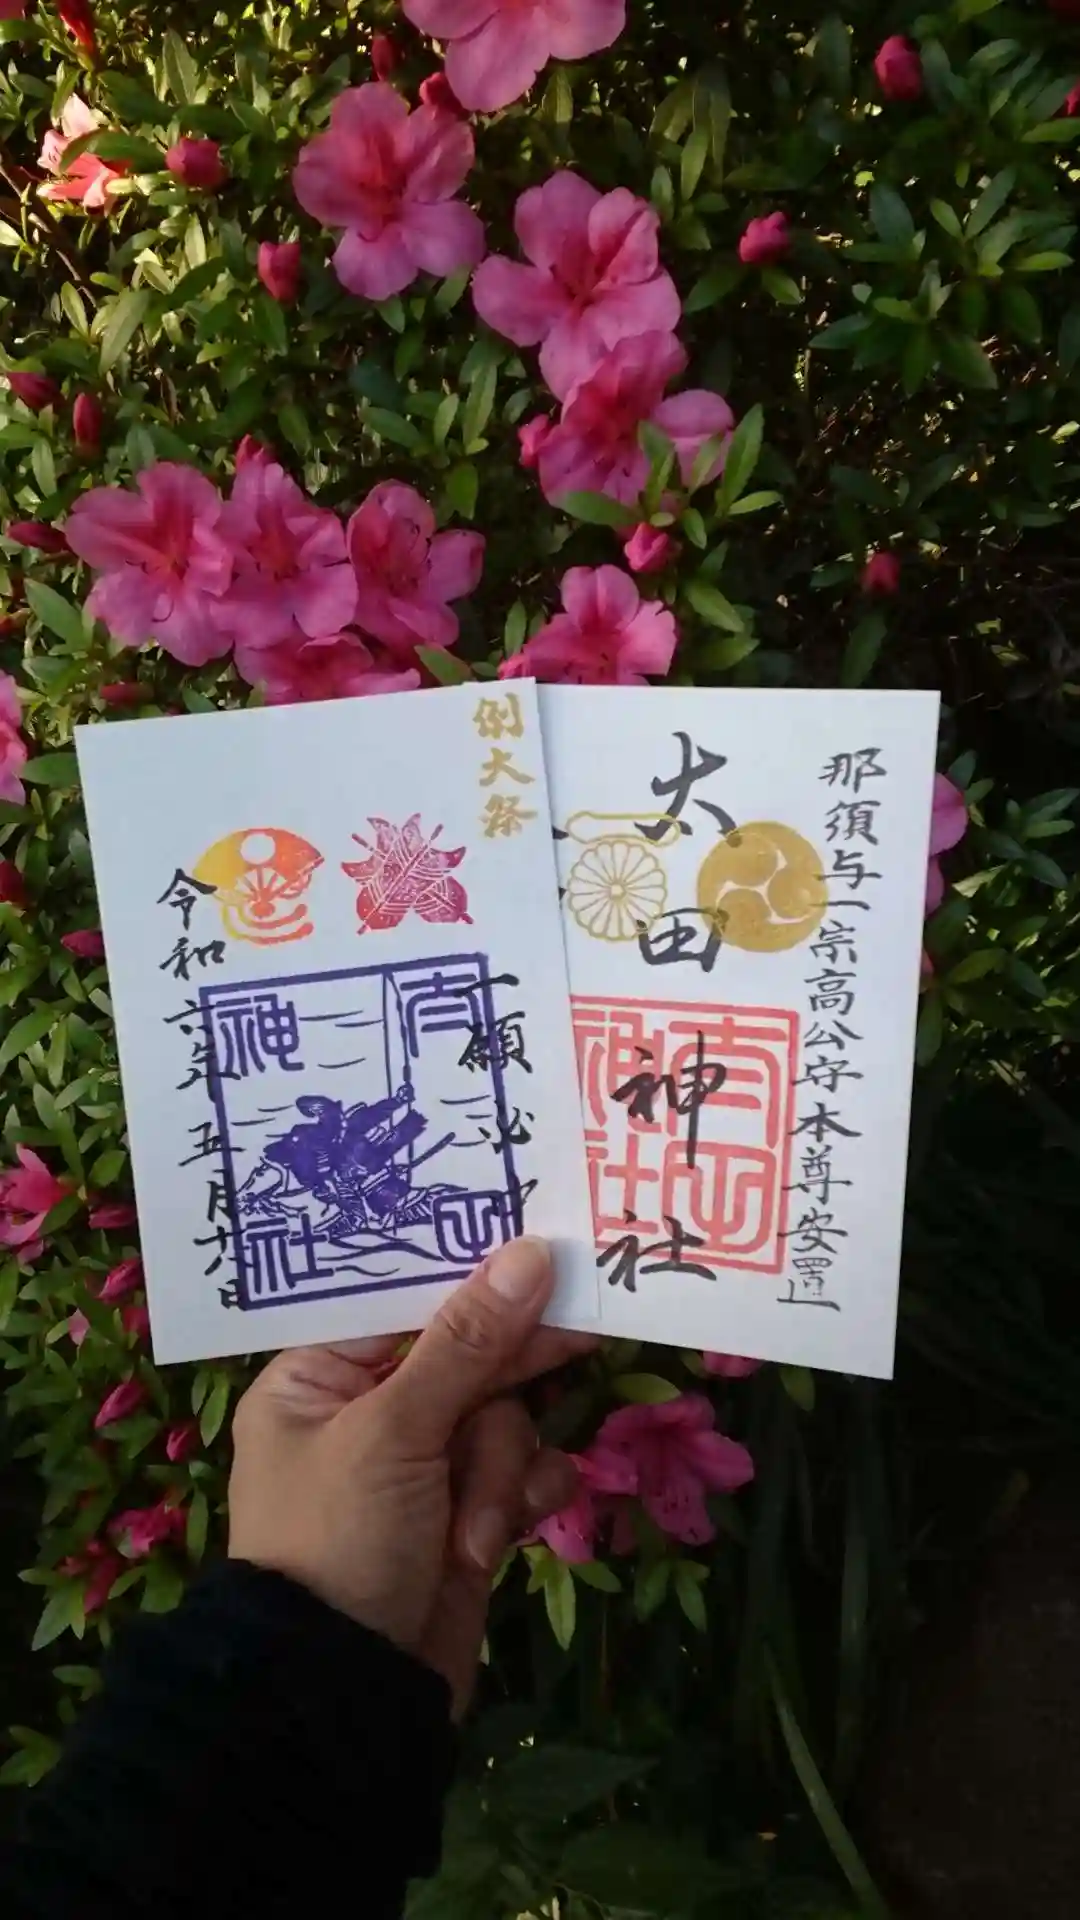 例大祭
一願必中
令和六年五月六日
神社太田
那須与一宗高公守本尊安置
太田神社
神社太田